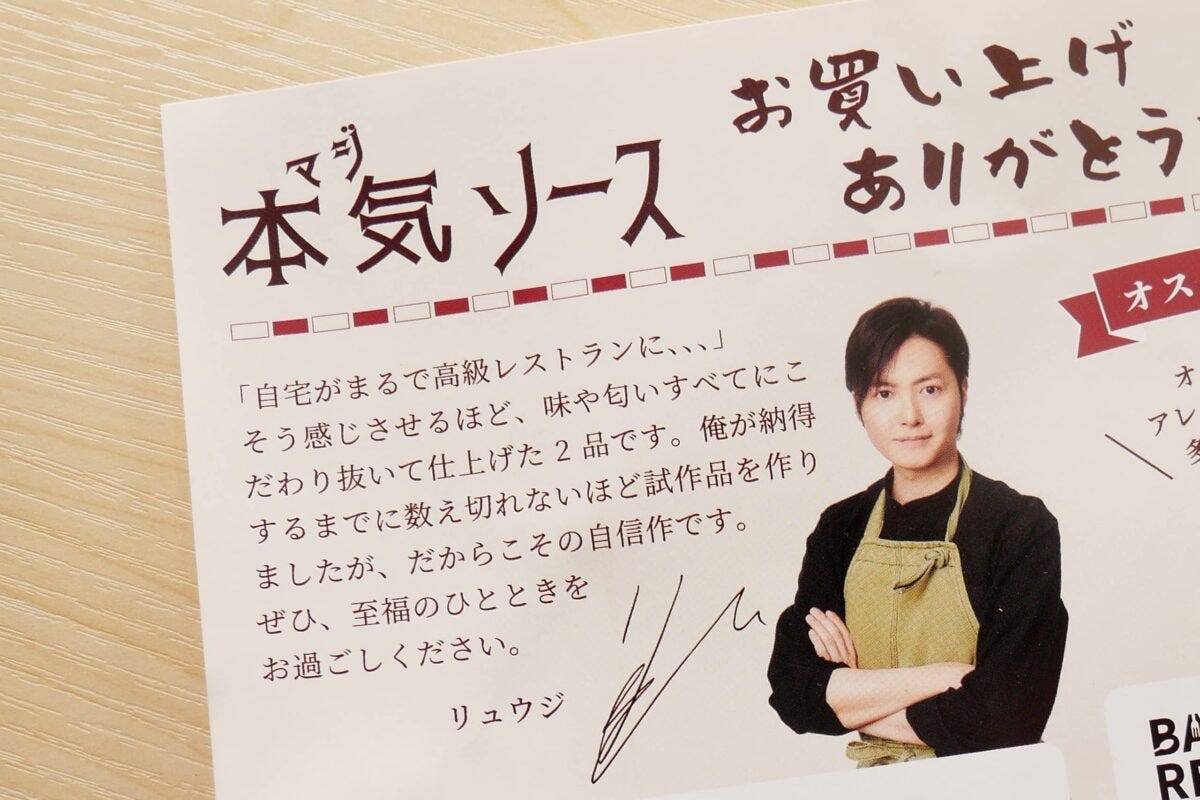 お買い上げ
ありがとう
マジ
本気ソース
「自宅がまるで高級レストランに、、、」
そう感じさせるほど、味や匂いすべてにこ
だわり抜いて仕上げた2品です。俺が納得
するまでに数え切れないほど試作品を作り
ましたが、だからこその自信作です。
ぜひ、至福のひとときを
お過ごしください。
リュウジ
オス
オ
アレ
BA
RE